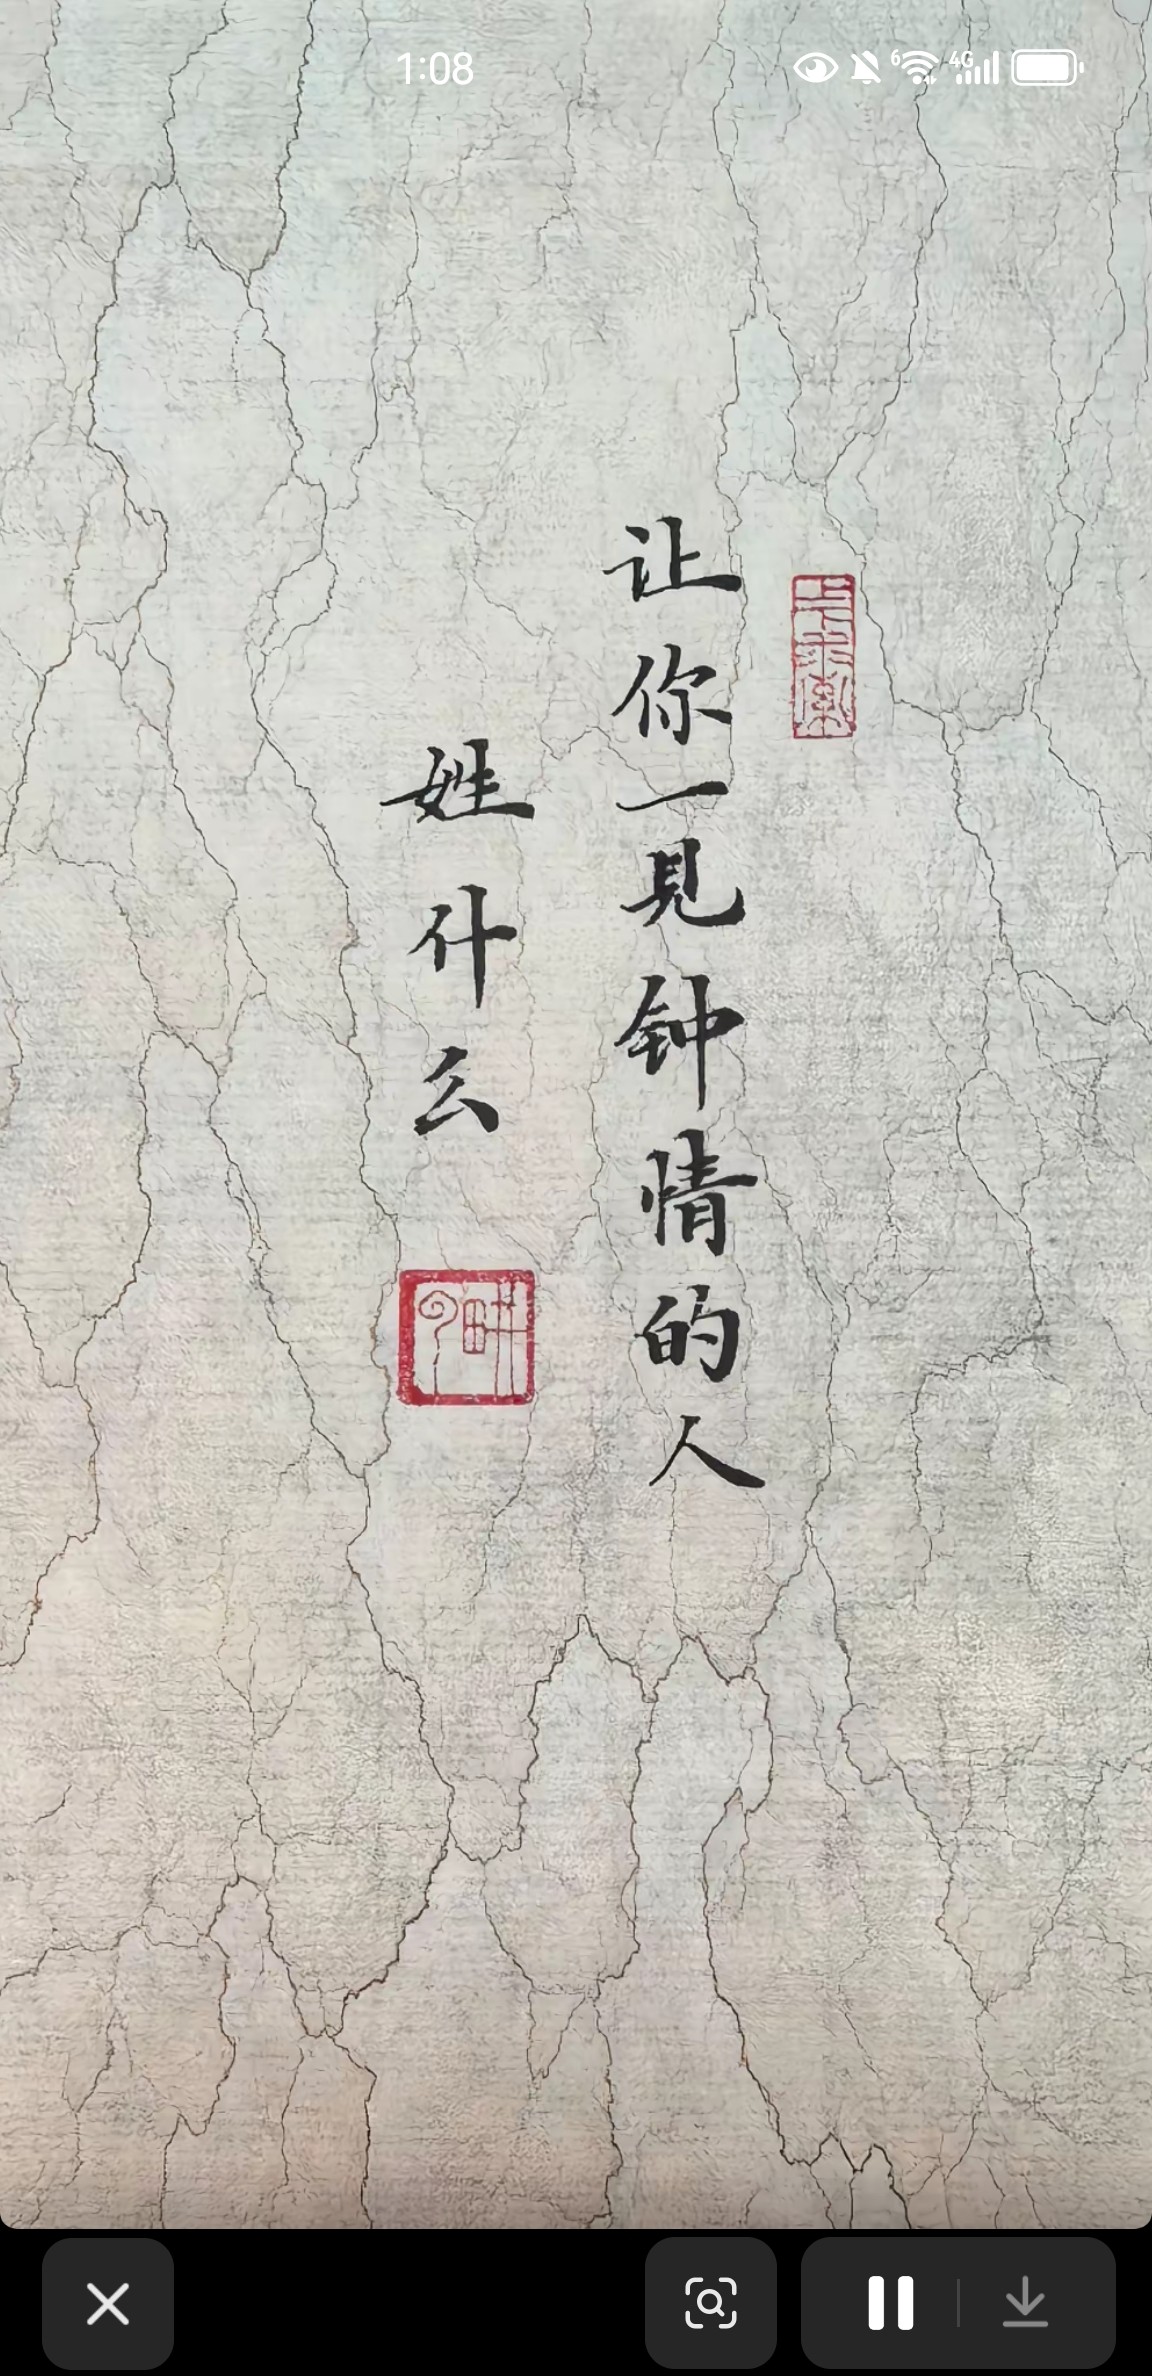 1:08
4G
让你一見钟情的人
姓什么